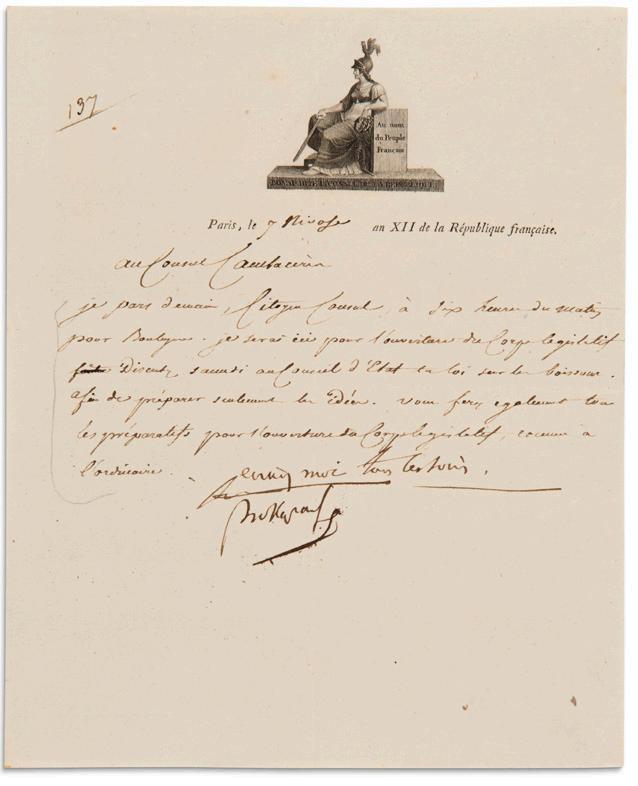 137
Au nom
du Peuple
Français
BONAPARTE Ier CONSUL DE LA RÉPUBLIQUE
Paris, le 7 Nivose an XII de la République française.
au Consul Cambacérès
je pars demain, Citoyen Consul, à six heures du matin
pour Boulogne. je serai ici pour l'ouverture du Corps législatif
Discutez samedi au Conseil d'Etat la loi sur les boissons
afin de préparer seulement les idées. vous ferez également tous
les préparatifs pour l'ouverture du Corps législatif, comme à
l'ordinaire.
ecrivez moi tous les soirs.
Bonaparte